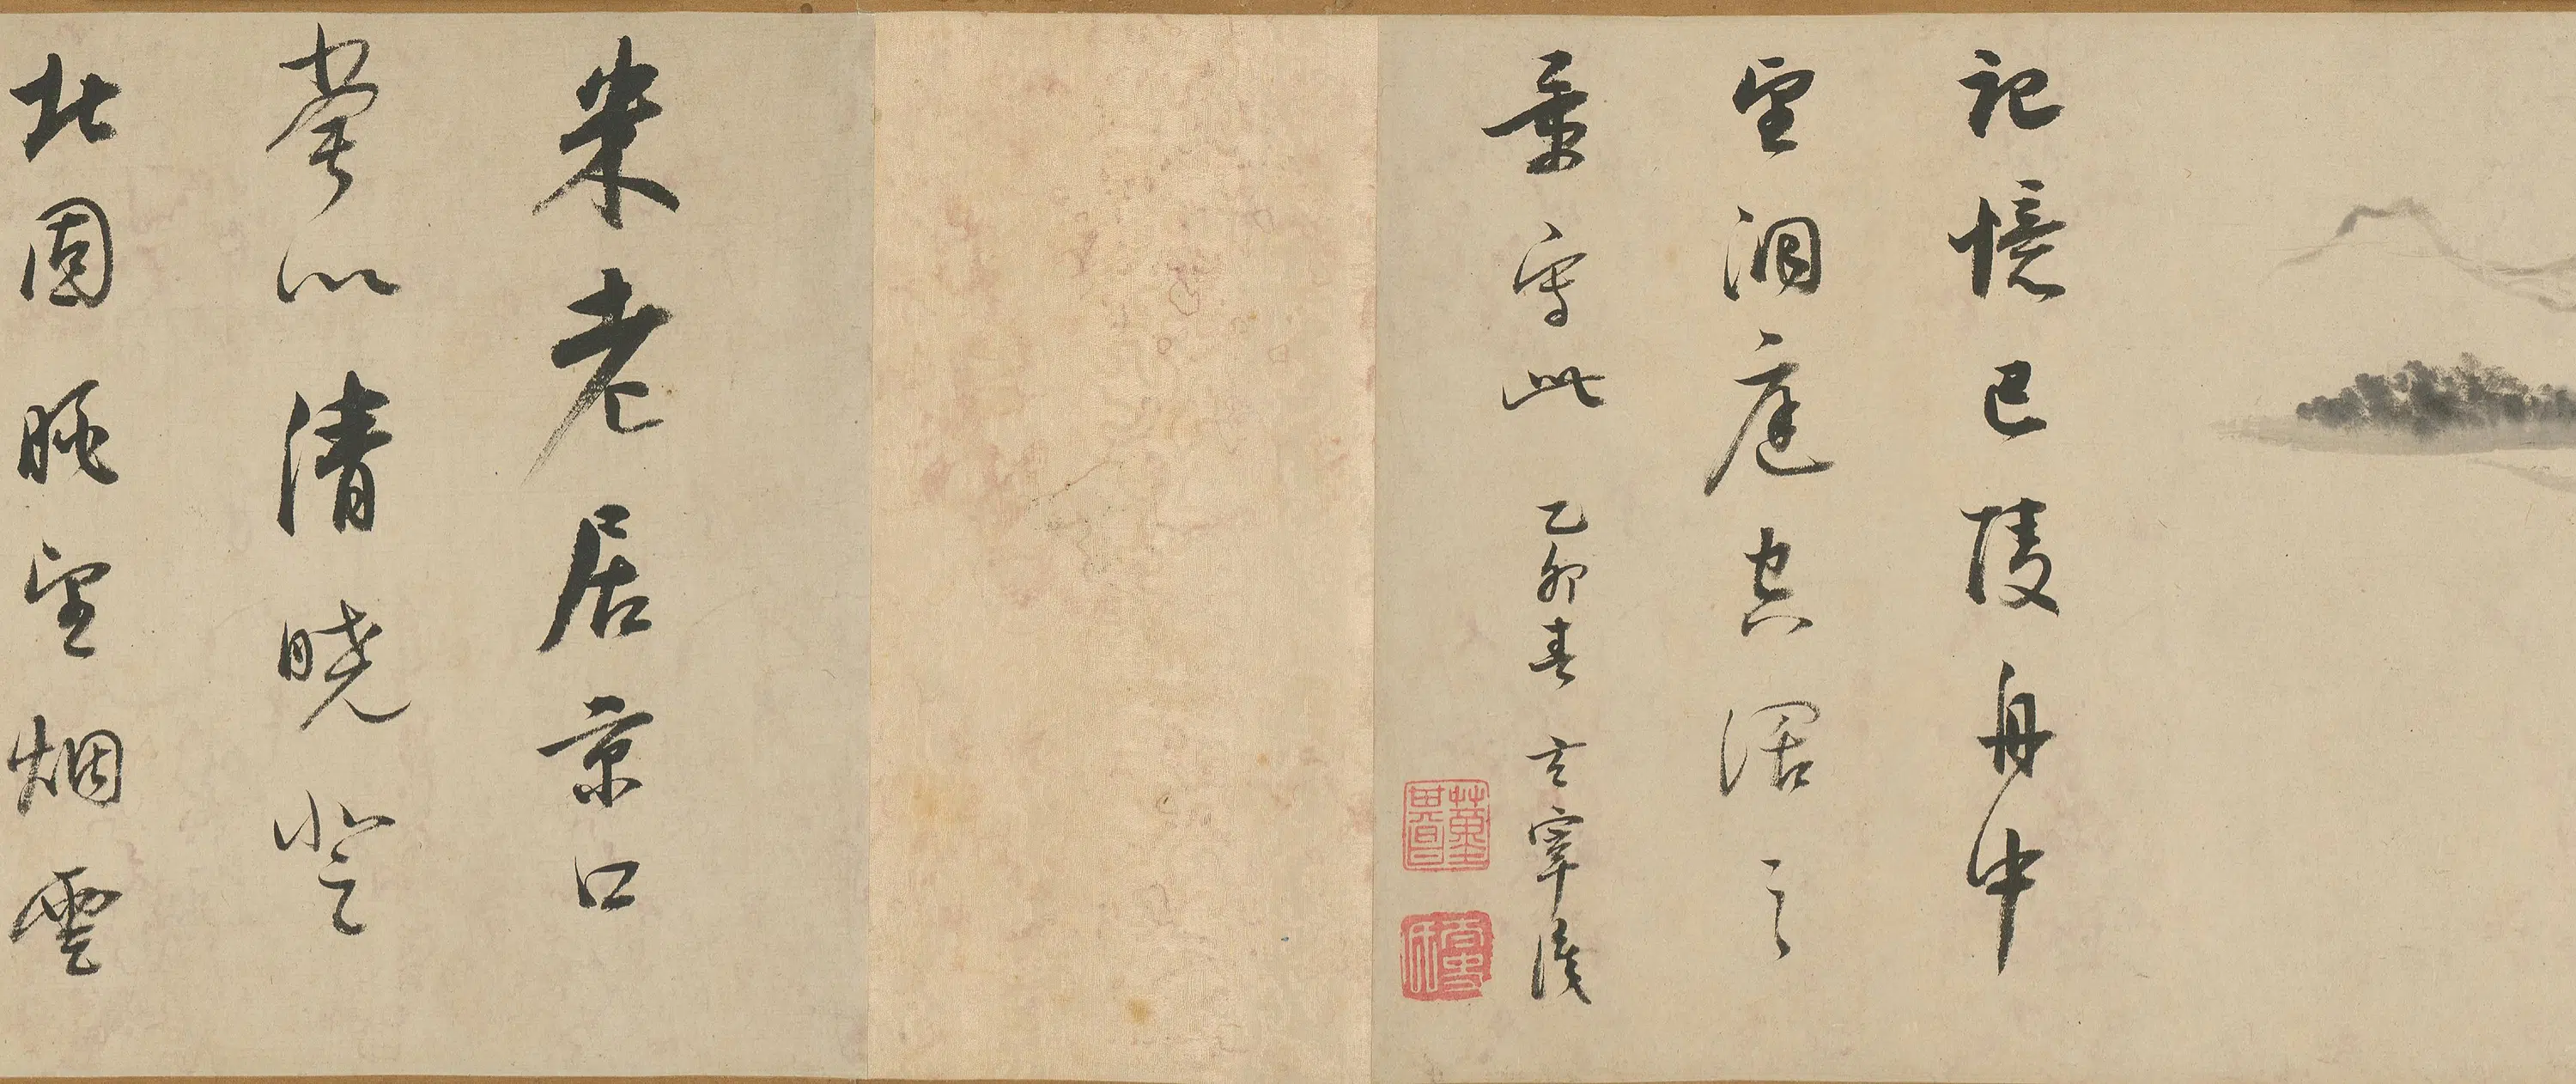 記憶巴陵舟中
望洞庭空濶之
景寫此 乙卯春 玄宰識
董其昌
米老居京口
嘗以清曉登
北固眺望烟雲